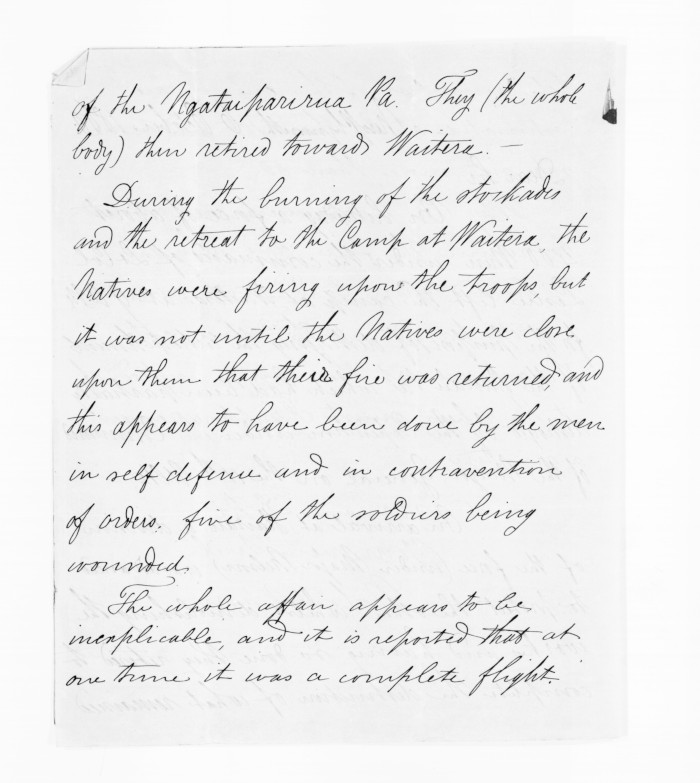 of the Ngataiparirua Pa. They (the whole
body) then retired towards Waitera. —
During the burning of the stockades
and the retreat to the Camp at Waitera, the
Natives were firing upon the troops, but
it was not until the Natives were close
upon them that their fire was returned, and
this appears to have been done by the men
in self defense and in contravention
of orders. five of the soldiers being
wounded.
The whole affair appears to be
inexplicable, and it is reported that at
one time it was a complete flight.